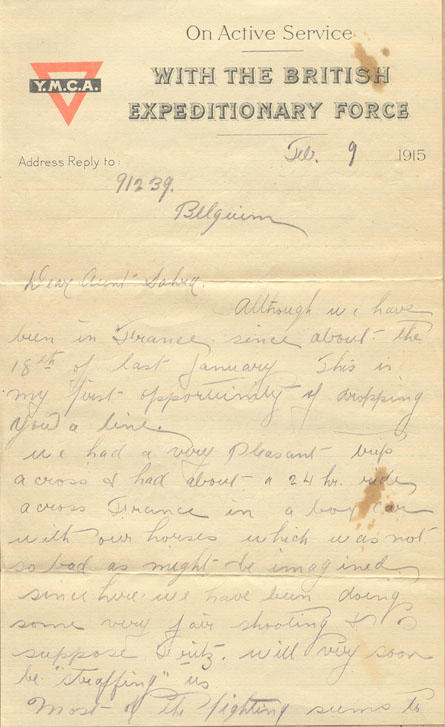 On Active Service
WITH THE BRITISH
Y.M.C.A.
EXPEDITIONARY FORCE
Address Reply to:
Feb. 9 1915
91239.
Belguim
Dear Aunt
Although we have
been in France since about the
18th of last January This is
my first opportunity of dropping
you a line.
we had a very Pleasant trip
across & had about a 24 hr. ride
across France in a box car
with our horses which was not
so bad as might be imagined
since here we have been doing
some very fair shooting & I
suppose Fritz. will very soon
be "straffing" us
Most of the fighting seems to